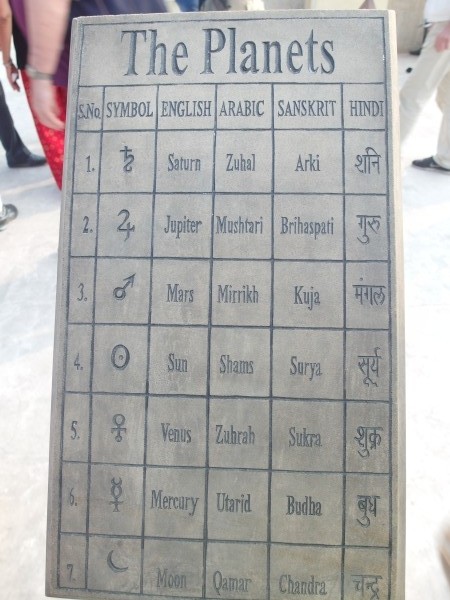 The Planets
S.No. SYMBOL ENGLISH ARABIC SANSKRIT HINDI
1. ♄ Saturn Zuhal Arki शनि
2. ♃ Jupiter Mushtari Brihaspati गुरु
3. ♂ Mars Mirrikh Kuja मंगल
4. ☉ Sun Shams Surya सूर्य
5. ♀ Venus Zuhrah Sukra शुक्र
6. ☿ Mercury Utarid Budha बुध
7. ☾ Moon Qamar Chandra चन्द्र